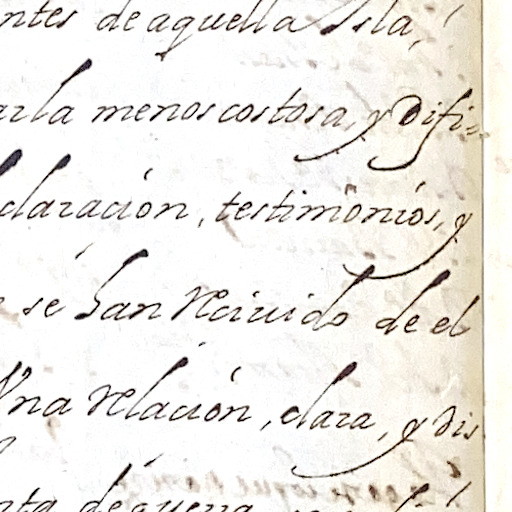 ntes de aquella Isla,
arla menos costosa, y Difi=
claración, testimonios, y
se han Reciuido de el
Vna Relación, clara, y dis
nta de guerra